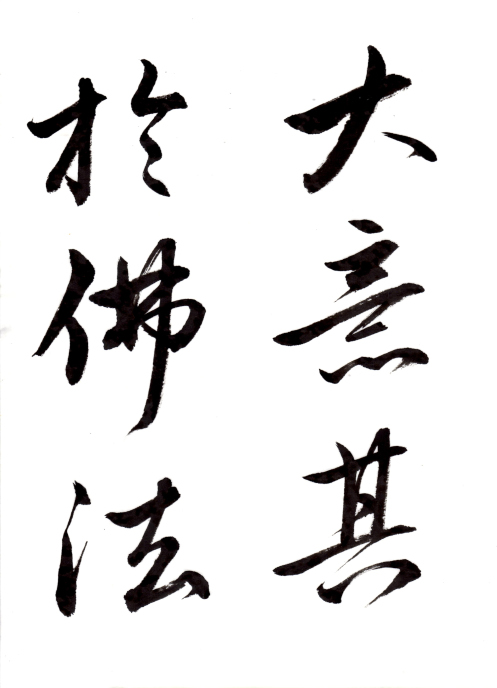 大意其
於佛法